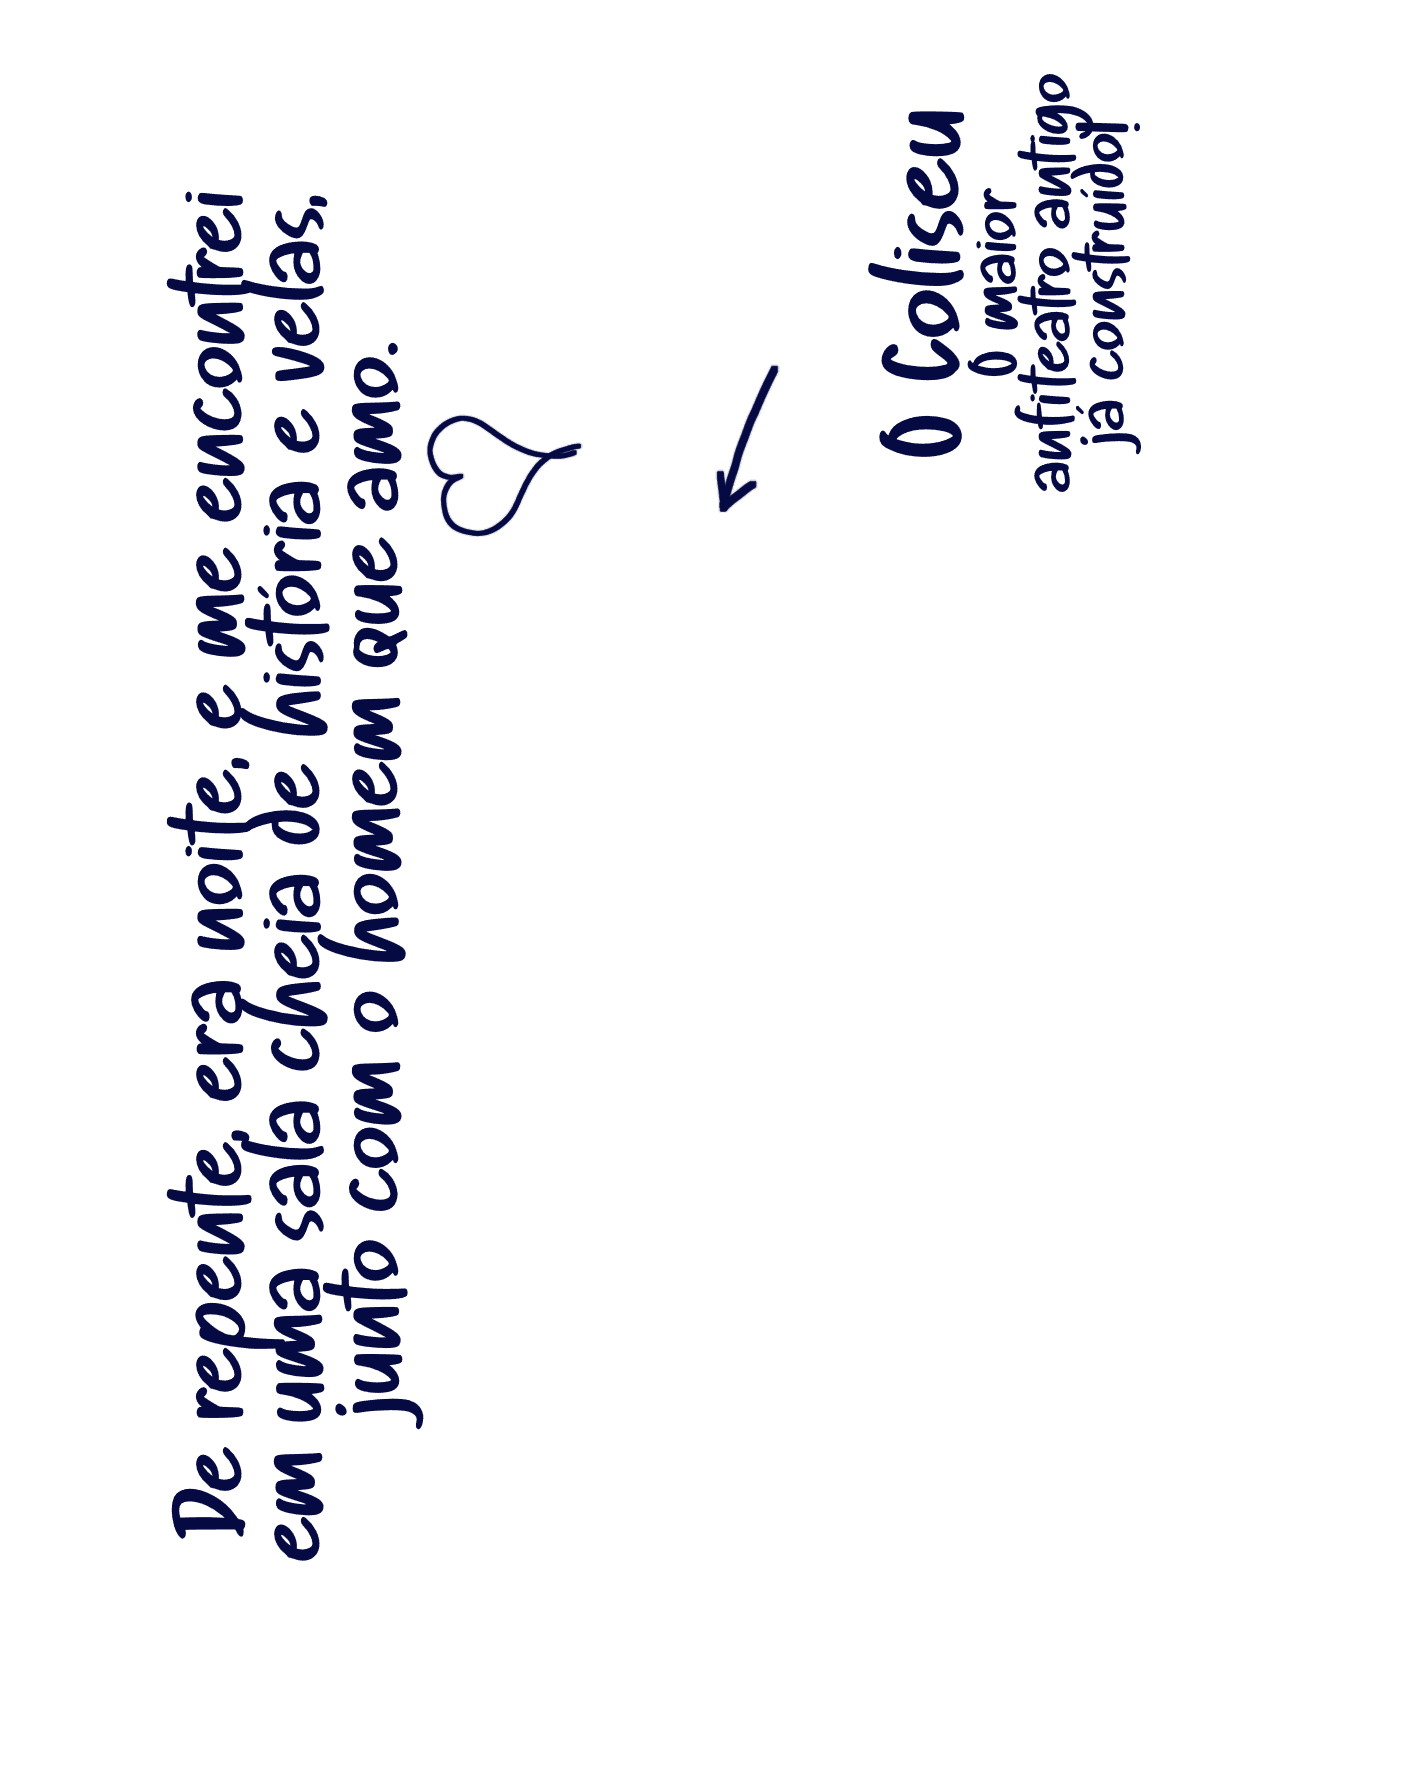 De repente, era noite, e me encontrei
em uma sala cheia de história e velas,
junto com o homem que amo.
O Coliseu
O maior
anfiteatro antigo
já construído!